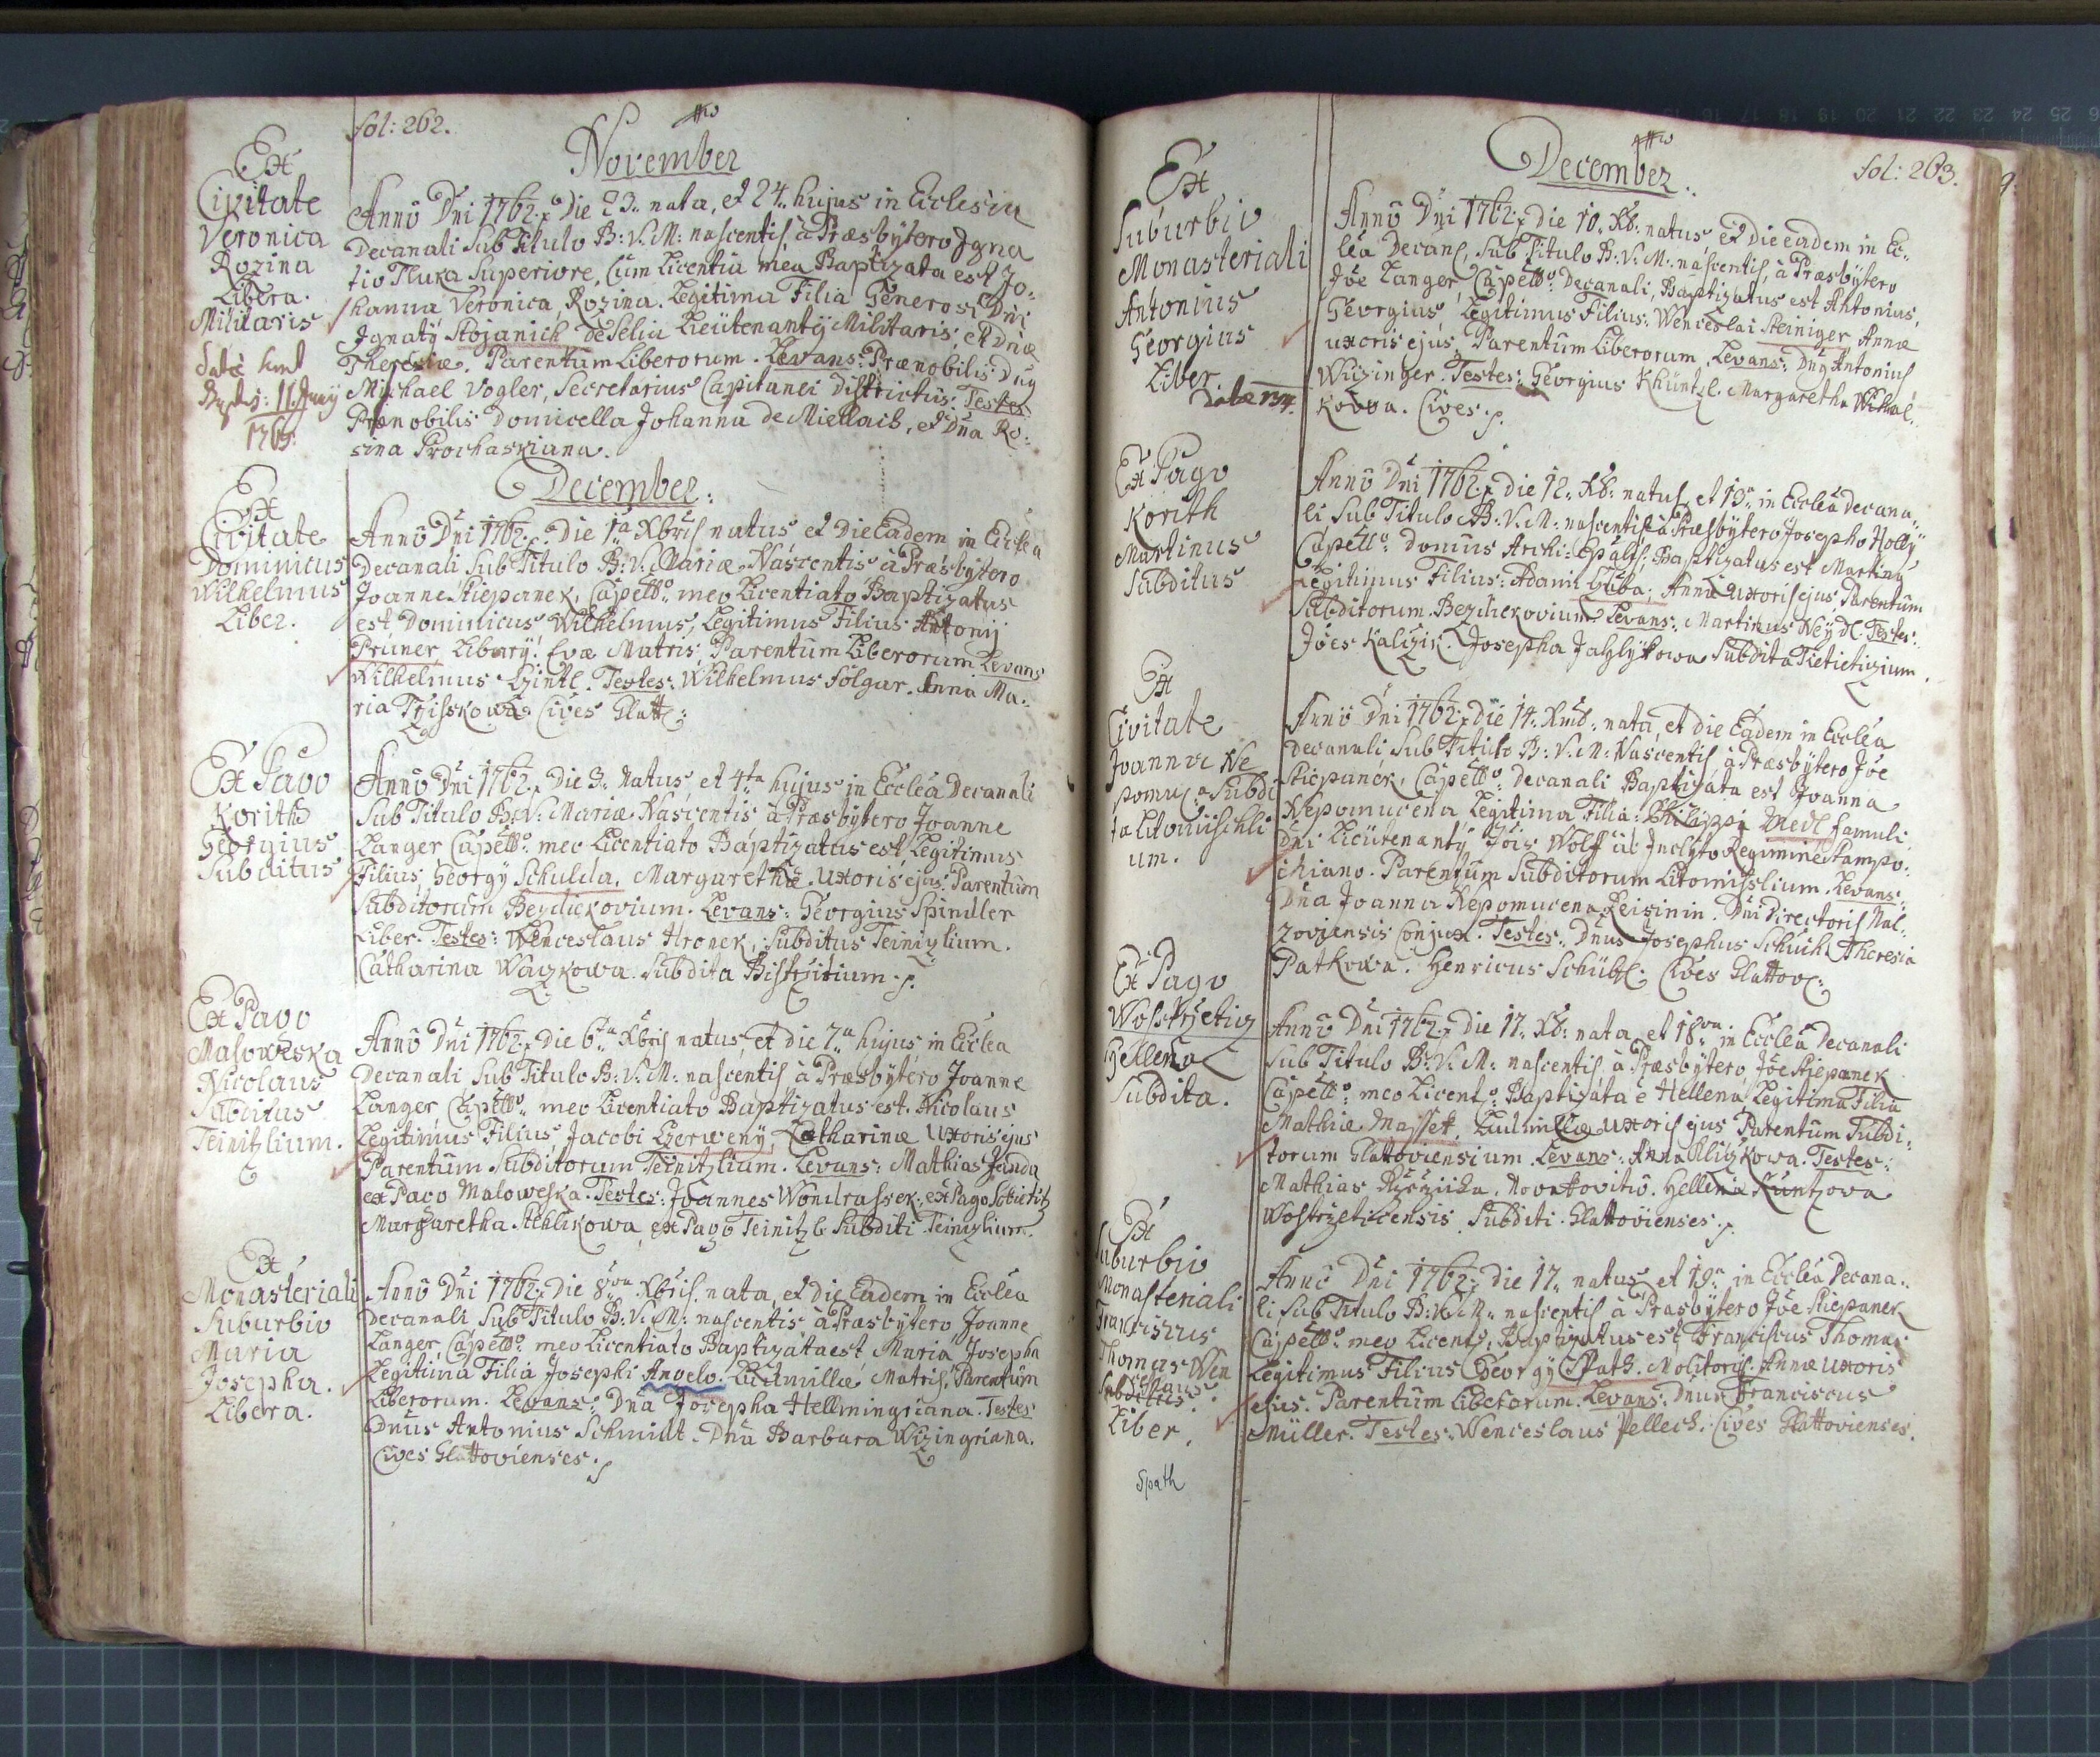 fol: 262.
November
Ex
Civitate
Veronica
Rozina
Libera.
Militaris
Datæ sunt
1765
Anno Dni 1762. Die 23. nata, et 24. hujus in Eclesia
Decanali Sub Titulo B: V: M: nascentis, à Præsbytero Igna
tio Tluxa Superiore, Cum Licentia mea Baptizata est Jo:
hanna Veronica, Rozina. Legitima Filia Generosi Dni
Ignaty Stojanich de Selin Lieütenanty Militaris, et Dnæ
Theresiæ. Parentum Liberorum. Levans: Prænobilis Dny
Michael Vogler, Secretarius Capitanei Districtus. Testes
Prænobilis Domicella Johanna de Miellach, et Dna Ro:
sina Prochaskiana.
December:
Ex
Civitate
Dominicus
Wilhelmus
Liber.
Anno Dni 1762. Die 1a Xbris natus et Die Eadem in Ecclea
Decanali Sub Titulo B: V: Mariæ Nascentis à Præsbytero
Joanne Stiepanek, Capello meo Licentiato Baptizatus
est Dominicus Wilhelmus, Legitimus Filius Antonij
Pruner, Libery: Evæ Matris; Parentum Liberorum Levans
Wilhelmus Czintl. Testes: Wilhelmus Folgar. Anna Ma:
ria Trisskowa Cives Glatt:
Ex Pago
Korith
Georgius
Subditus
Anno Dni 1762. Die 3. Natus, et 4ta hujus in Ecclea Decanali
Sub Titulo B: V: Mariæ Nascentis à Præsbytero Joanne
Langer Capello meo Licentiato Baptizatus est Legitimus
Filius, Georgy Schulda, Margarethæ Uxoris ejus. Parentum
Subditorum Bezdiekovium. Levans: Georgius Spindler
Liber. Testes: Wenceslaus Hronek, Subditus Teinizlium.
Catharina Waczkowa. Subdita Bistritium.
Ex Pago
Maloweska
Nicolaus
Subditus
Teinitzlium.
Anno Dni 1762. die 6ta Xbris natus, et die 7a hujus in Ecclea
Decanali Sub Titulo B: V: M: nascentis à Præsbytero Joanne
Langer Capello meo Licentiato Baptizatus est Nicolaus
Legitimus Filius Jacobi Czerweny, Catharinæ Uxoris ejus
Parentum Subditorum Teinitzlium. Levans: Mathias Janda
ex Pago Maloweska. Testes: Joannes Wondrassek, ex Pago Sobietitz
Margaretha Stehlikowa, ex Pago Teinitzl. Subditi Teinizlium.
Ex
Monasteriali
Suburbio
Maria
Josepha.
Libera.
Anno Dni 1762. Die 8va Xbris. nata, et die Eadem in Ecclea
Decanali Sub Titulo B: V: M: nascentis à Præsbytero Joanne
Langer, Capello meo Licentiato Baptizata est Maria Josepha
Legitima Filia Josephi Angelo. Ludmillæ Matris, Parentum
Liberorum. Levans: Dna Josepha Hellmingriana. Testes
Dnus Antonius Schmidt. Dna Barbara Wizingriana.
Cives Glattovienses.
December.
fol: 263.
Ex
Suburbio
Monasteriali
Antonius
Georgius
Liber.
Anno Dni 1762. Die 10. Xb: natus et Die eadem in Ec:
clea Decanl, Sub Titulo B: V: M: nascentis, à Præsbytero
Joe Langer, Capello Decanali, Baptizatus est Antonius,
Georgius Legitimus Filius: Wenceslai Steiniger, Annæ
uxoris ejus, Parentum Liberorum. Levans: Dny Antonius
Wizinger. Testes: Georgius Khüntzl. Margaretha Wihal:
kova. Cives.
Ex Pago
Korith
Martinus
Subditus
Anno Dni 1762. die 12. Xb: natus, et 13a in Ecclea Decana:
li Sub Titulo B: V: M: nascentis à Præsbytero Josepho Holly
Capello Domus Archi: Epalis, Baptizatus est Martiny
Legitimus Filius: Adami Huba, Annæ Uxoris ejus, Parentum
Subditorum Bezdiekovium. Levans: Martinus Neydl. Testes:
Joes Kalczik. Josepha Jahlykowa Subdita Tietietizium.
Ex
Civitate
Joanna Ne
pomucena Subdi
ta Litomischli
um.
Anno Dni 1762. die 14. Xmb: nata, et die Eadem in Ecclea
Decanali Sub Titulo B: V: M: Nascentis à Præsbytero Joe
Stiepanek, Capello Decanali Baptizata est Joanna
Nepomucena Legitima Filia: Philippi Diedl famuli
Dni Lieütenanty Jois Wolff ab Inclyto Regimine Stampo:
chiano. Parentum Subditorum Litomisslium. Levans:
Dna Joanna Nepomucena Leisinin. Dni Directoris Mal:
zoviensis Conjux. Testes: Dnus Josephus Schuch. Theresia
Patkowa. Henricus Schübl. Cives Glattov:
Ex Pago
Wostrzetiz
Hellena
Subdita.
Anno Dni 1762. Die 17. Xb: nata, et 18va in Ecclea Decanali
Sub Titulo B: V: M: nascentis à Præsbytero, Joe Stiepanek
Capello meo Licent: Baptizata e Hellena Legitima Filia
Mathiæ Masset, Ludmillæ uxoris ejus Parentum Subdi:
torum Glattoviensium. Levans: Anna Klizkowa. Testes:
Mathias Novakovitio. Hellena Kuntzova
Wostrzeticensis Subditi Glattovienses.
Ex
Suburbio
Monasteriali
Franciscus
Thomas Wen
ceslaus
Liber.
Spath
Anno Dni 1762. Die 17. natus, et 19a in Ecclea Decana:
li, Sub Titulo B: V: M: nascentis à Præsbytero Joe Stiepanek
Capello meo Licent: Baptizatus est Franciscus Thomas
Legitimus Filius Georgy Spath. Molitoris, Annæ uxoris
ejus. Parentum Liberorum. Levans: Dnus Franciscus
Müller. Testes: Wenceslaus Pellech: Cives Glattovienses.